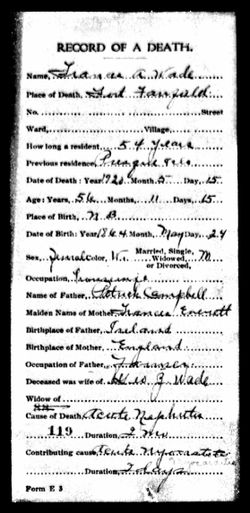 RECORD OF A DEATH.
Name, Frances A Wade
Place of Death, Fort Fairfield
No. Street
Ward, Village,
How long a resident, 54 Years
Previous residence, Presque Isle
Date of Death: Year 1920 Month 5 Day, 15
Age: Years, 56 Months, 11 Days, 15
Place of Birth, N B
Date of Birth: Year 1864 Month, May Day, 24
Sex, Female Color, W. Married, Single, Widowed, or Divorced, M
Occupation,
Name of Father, Patrick Campbell
Maiden Name of Mother, Frances Everett
Birthplace of Father, Ireland
Birthplace of Mother, England
Occupation of Father, Farmer
Deceased was wife of, Geo J. Wade
Widow of
Cause of Death, Acute Nephritis
119 Duration, 2
Contributing cause, Acute
Duration, 7 days
Form E 3